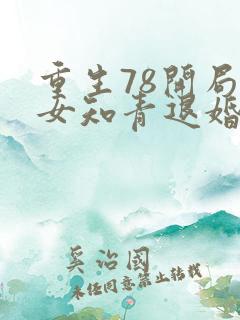 重生78開局
女知青退婚
奚治國
未经同意禁止转载